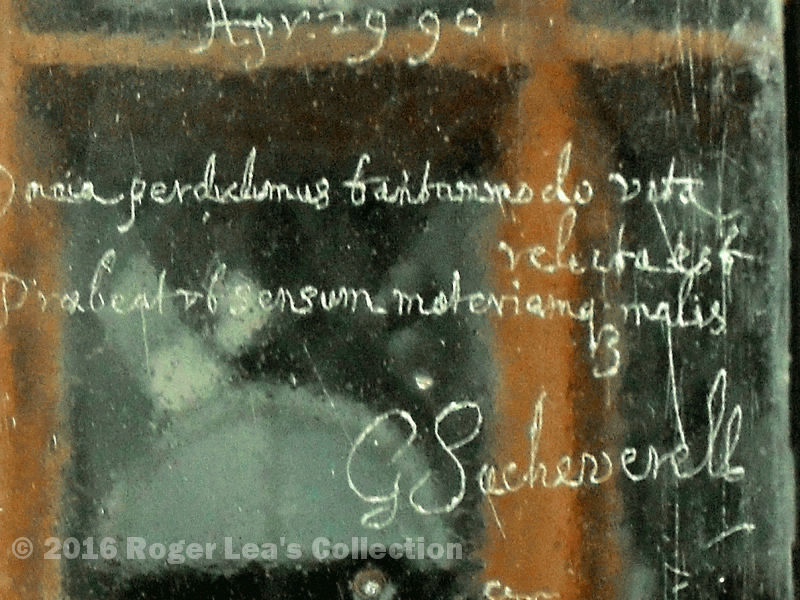 Apr. 29 90
Omnia perdidimus tantummodo vita
relicta est
Præbeat ut sensum materiamq malis
3
G Sacheverell
© 2016 Roger Lea's Collection